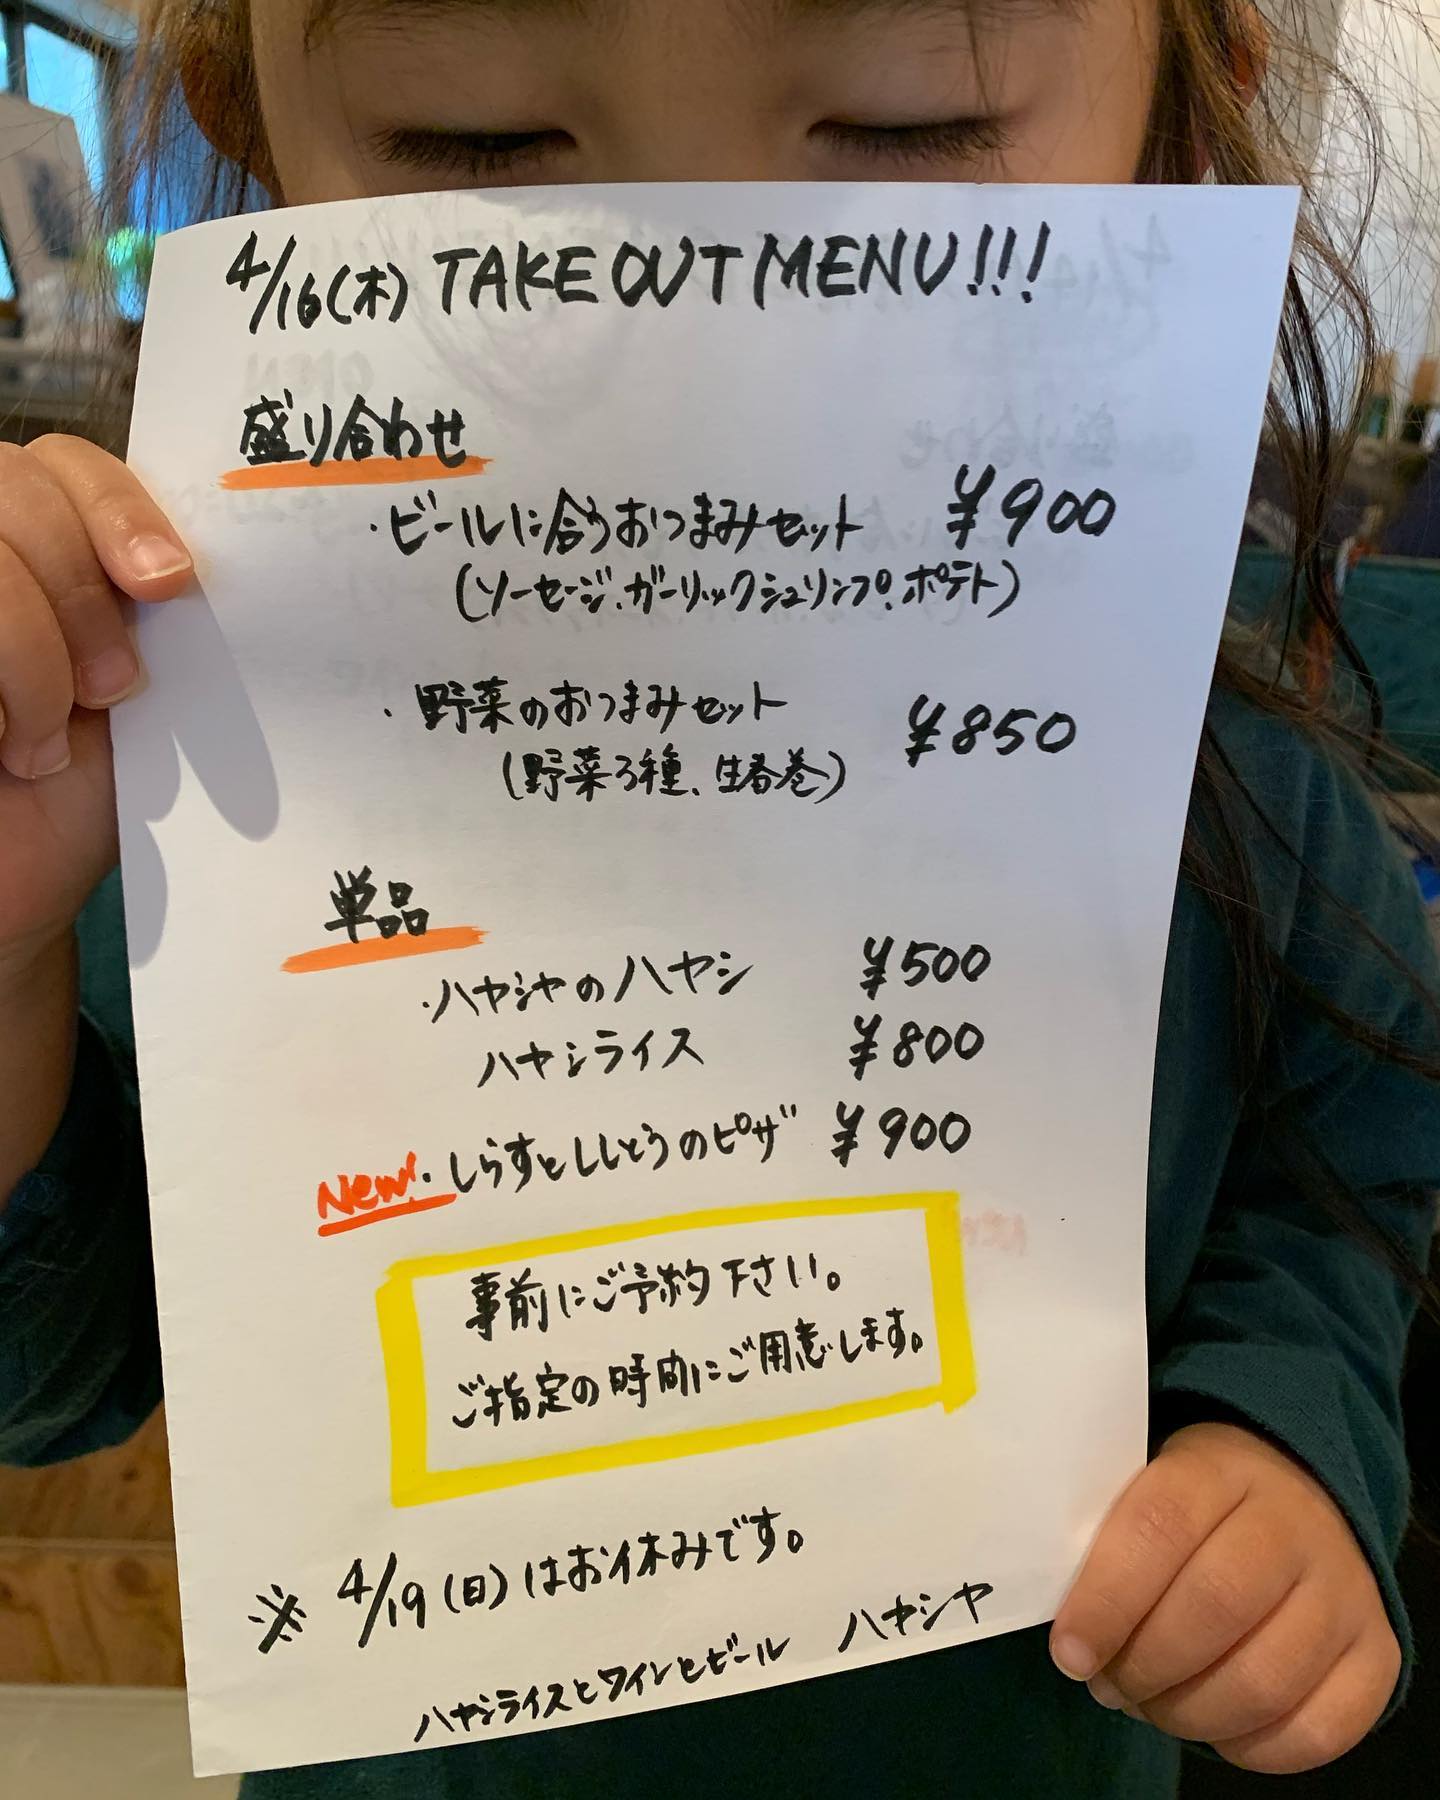 4/16(木) TAKE OUT MENU!!!
盛り合わせ
・ビールに合うおつまみセット ¥900
(ソーセージ、ガーリックシュリンプ、ポテト)
・野菜のおつまみセット ¥850
(野菜3種、生春巻)
単品
・ハヤシヤのハヤシ ¥500
ハヤシライス ¥800
New!・しらすとししとうのピザ ¥900
事前にご予約下さい。
ご指定の時間にご用意します。
※ 4/19(日)はお休みです。
ハヤシライスとワインとビール ハヤシヤ